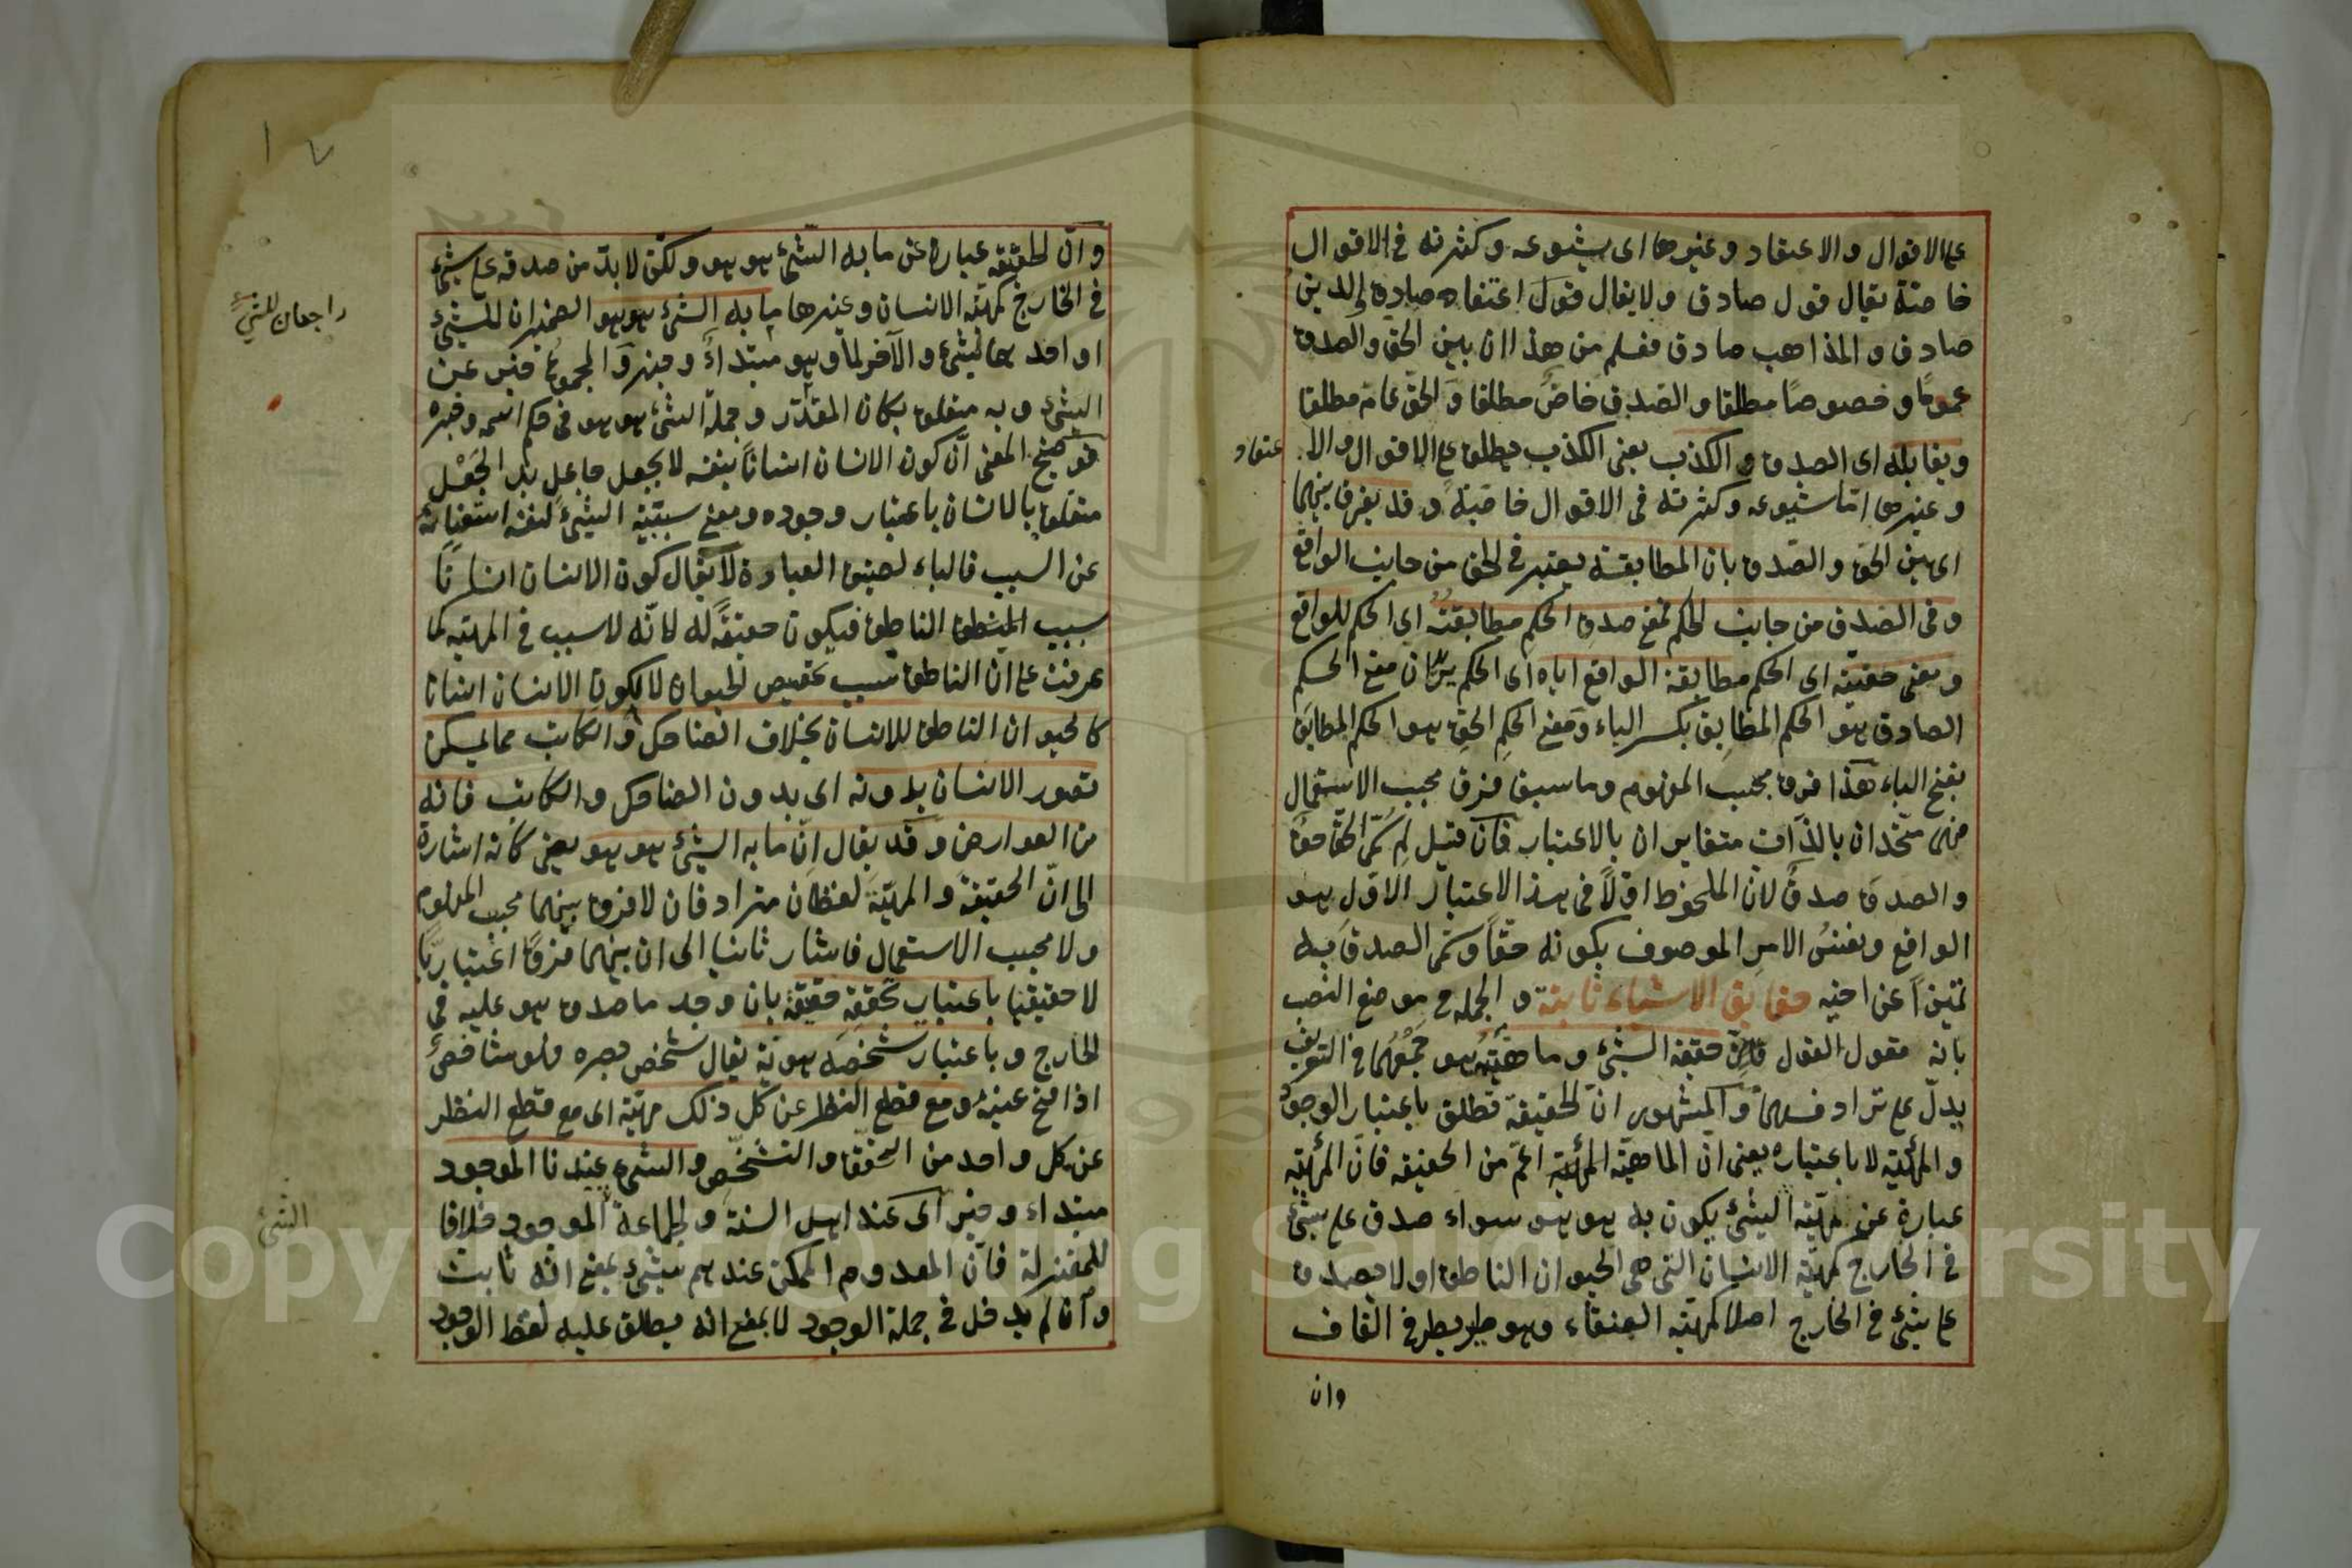 على الاقوال والاعتقاد وغيرها اى شيوعه وكثرته فى الاقوال
خاصة يقال قول صادق ولا يقال قول اعتقاده صادق والدين
صادق والمذاهب صادق فعلم من هذا ان بين الحق والصدق
عموما وخصوصا مطلقا والصدق خاص مطلقا والحق عام مطلقا
ويقابله اى الصدق والكذب يعنى الكذب يطلق على الاقوال والا
عتقاد
وغيرها امّا شيوعه وكثرته فى الاقوال خاصّة وقد يفرق بينهما
اى بين الحق والصدق بان المطابقة يعتبر فى الحق من جانب الواقع
وفى الصدق من جانب الحكم فمعنى صدق الحكم مطابقته اى الحكم للواقع
ومعنى حقيّته اى الحكم مطابقة الواقع اياه اى الحكم كان معنى الحكم
الصادق هو الحكم المطابِق بكسر الباء ومعنى الحكم الحق هو الحكم المطابَق
بفتح الباء هذا فرق بحسب المفهوم وما سبق فرق بحسب الاستعمال
فهما متحدان بالذات متغايران بالاعتبار فان قيل لم سمّى الحق حقا
والصدق صدقا لان الملحوظ اوّلاً فى هذا الاعتبار الاوّل هو
الواقع ونفس الامر الموصوف بكونه حقّاً وسمى الصدق به
تميزاً عن اخيه حقايق الاشياء ثابتة والجملة موضع النصب
بانه مقول القول فان حقيقة الشئ وماهيّته هو جمعهما فى التعريف
يدلّ على ترادفهما والمشهور انّ الحقيقة تطلق باعتبار الوجود
والمهيّة لا باعتباره يعنى انّ الماهيّة المهيّة اعمّ من الحقيقة فانّ المهيّة
عبارة عن مهيّة الشئ يكون به هو هو سواء صدق على شئ
فى الخارج كمهيّة الانسان التى هى الحيوان الناطق او لا يصدق
على شئ فى الخارج اصلا كمهيّة العنقاء وهو طير يطير فى القاف
وان
وانّ الحقيقة عبارة عن ما به الشئ هو هو ولكن لا بدّ من صدقه على شئ
فى الخارج كمهيّة الانسان وغيرها ما به الشئ هو هو الضميران للشئ
راجعان للشئ
او احدهما لشئ والآخر لما وهو مبتداءٌ وخبر والمجموع خبر عن
الشئ وبه متعلق بكان المقدّر وجملة الشئ هو هو فى حكم اسمه وخبره
فتوضيح المعنى انّ كون الانسان انساناً بنفسه لا بجعل جاعل بل الجَعْل
متعلق بالانسان باعتبار وجوده ومعنى سببيّة الشئ لنفسه استغنائه
عن السبب فالباء لضيق العبارة لا يقال كون الانسان انساناً
سبب الناطق فيكون حقيقةً له لانّه لا سبب فى المهيّة كما
عرفت على ان الناطق سبب تخصيص الحيوان لا لكون الانسان انسانا
كالحيوان الناطق للانسان بخلاف الضاحك والكاتب مما يمكن
تصور الانسان بدونه اى بدون الضاحك والكاتب فانه
من العوارض وقد يقال انّ ما به الشئ هو هو يعنى كانه اشارة
الى انّ الحقيقة والمهيّة لفظان مترادفان لا فرق بينهما بحسب المفهوم
ولا بحسب الاستعمال فاشار ثانيا الى ان بينهما فرقا اعتباريّا
لا حقيقيا باعتبار تحققه حقيقة بان وجد ما صدق هو عليه فى
الخارج وباعتبار تشخصه هوية يقال شخص بصره فهو شاخص
اذا فتح عينه ومع قطع النظر عن كل ذلك مهيّة اى مع قطع النظر
عن كل واحد من التحقق والتشخّص والشئ عندنا الموجود
مبتداء وخبر اى عند اهل السنة والجماعة الموجود خلافا
الشئ
للمعتزلة فانّ المعدوم الممكن عندهم شئ بمعنى انّه ثابت
وان لم يدخل فى جملة الوجود لا بمعنى انه يطلق عليه لفظ الوجود
Copyright © King Saud University